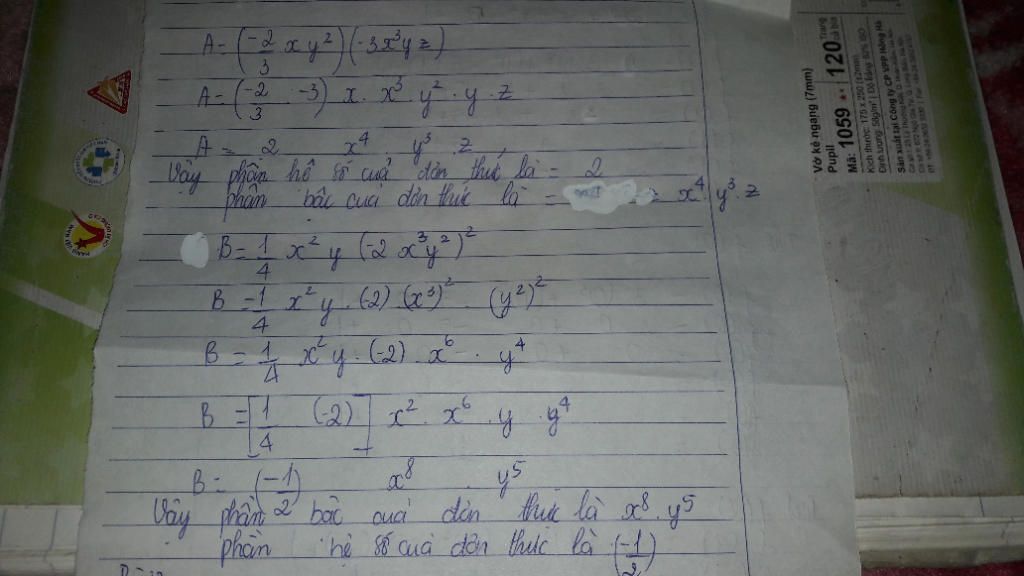 A = (-2/3 x y²) (-3x³yz)
A = (-2/3 . -3) x . x³ . y² . y . z
A = 2 x⁴ . y³ . z ,
Vậy phần hệ số của đơn thức là = 2
phần bậc của đơn thức là = x⁴ y³ . z
B = 1/4 x² y (-2 x³y²)²
B = 1/4 x² y . (-2) (x³)² . (y²)²
B = 1/4 x² y . (-2) . x⁶ . y⁴
B = [1/4 (-2)] x² . x⁶ . y . y⁴
B = (-1/2) x⁸ . y⁵
Vậy phần bậc của đơn thức là x⁸ . y⁵
phần hệ số của đơn thức là (-1/2)
Vở kẻ ngang (7mm)
Pupil
Mã: 1059 ★★ 120 Trang
Kích thước: 175 x 250 (±2mm)
Sản xuất tại Công ty CP VPP Hồng Hà